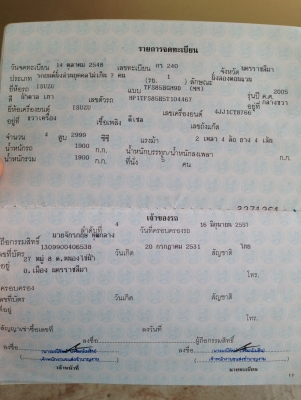 รายการจดทะเบียน
วันจดทะเบียน 14 ตุลาคม 2548 เลขทะเบียน กร 240 จังหวัด นครราชสีมา
ประเภท รถยนต์นั่งส่วนบุคคลไม่เกิน 7 คน (รย. 1) ลักษณะ นั่งสองตอนแวน
ยี่ห้อรถ ISUZU แบบ TFS85HGMHD (MM) รุ่นปี ค.ศ. 2005
สี น้ำตาล เทา เลขตัวรถ อยู่ที่ กลางขวา
ยี่ห้อเครื่องยนต์ ISUZU เลขเครื่องยนต์
อยู่ที่ ขวาเครื่อง เชื้อเพลิง ดีเซล เลขถังแก๊ส
จำนวน 4 สูบ 2999 ซีซี แรงม้า 2 เพลา 4 ล้อ 4 เส้น
น้ำหนักรถ 1900 ก.ก. น้ำหนักบรรทุก/น้ำหนักลงเพลา ก.ก.
น้ำหนักรวม 1900 ก.ก. ที่นั่ง คน
เจ้าของรถ
ลำดับที่ 4 วันที่ครอบครองรถ 16 มิถุนายน
ผู้ถือกรรมสิทธิ์
เลขที่บัตร 1309900406538 วันเกิด 20 กรกฎาคม 2531 สัญชาติ ไทย
ที่อยู่ 27 หมู่ 8 ต.หนองไข่น้ำ
อ.เมือง นครราชสีมา โทร.
ผู้ครอบครอง
เลขที่บัตร วันเกิด สัญชาติ
ที่อยู่ โทร.
สัญญาเช่าซื้อเลขที่ ลงวันที่
ลงชื่อ ผู้ถือกรรมสิทธิ์
ลงชื่อ ลงชื่อ
เจ้าหน้าที่ นายทะเบียน